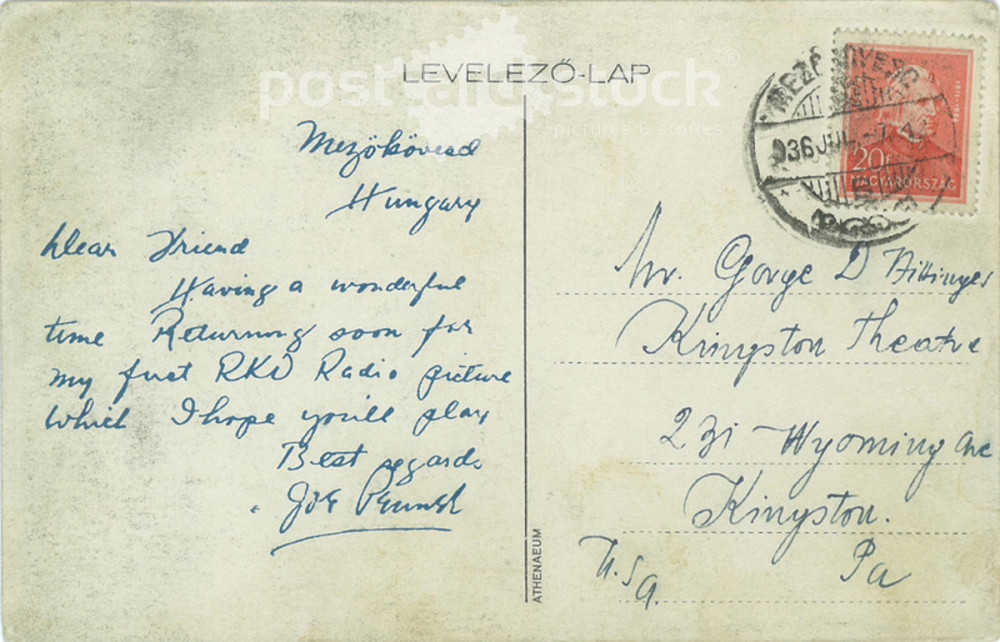 LEVELEZŐ-LAP
post stock
pictures & stories
Mezőkövesd
Hungary
Dear Friend
Having a wonderful
time Returning soon for
my first RKO Radio picture
which I hope you'll play
Best regards
Joe Penner
ATHENAEUM
936 JUL.
20f
MAGYARORSZÁG
Mr. George D
Kingston Theatre
231 Wyoming Ave
Kingston.
Pa
U.S.A.